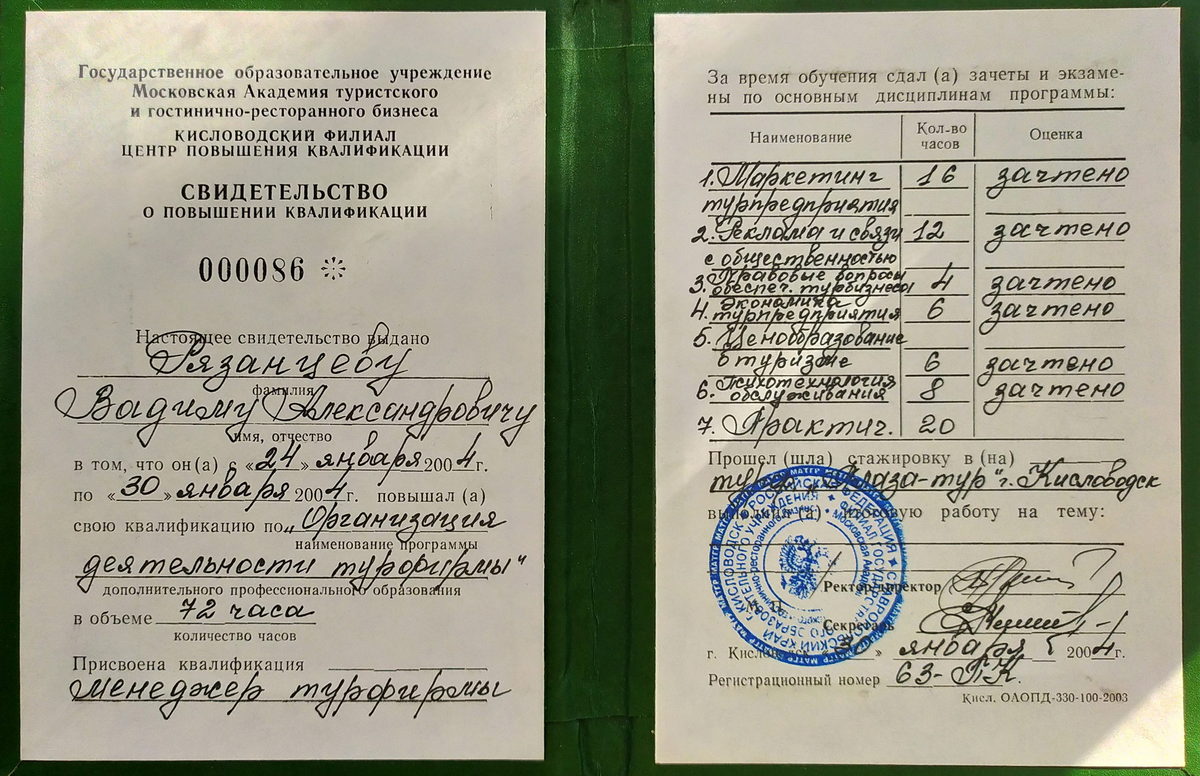 Государственное образовательное учреждение
Московская Академия туристского
и гостинично-ресторанного бизнеса
КИСЛОВОДСКИЙ ФИЛИАЛ
ЦЕНТР ПОВЫШЕНИЯ КВАЛИФИКАЦИИ
СВИДЕТЕЛЬСТВО
О ПОВЫШЕНИИ КВАЛИФИКАЦИИ
000086
Настоящее свидетельство выдано
Рязанцеву
фамилия
Вадиму Александровичу
имя, отчество
в том, что он(а) с «24» января 2004г.
по «30» января 2004г. повышал (а)
свою квалификацию по „Организация
наименование программы
деятельности турфирмы"
дополнительного профессионального образования
в объеме 72 часа
количество часов
Присвоена квалификация
менеджер турфирмы
За время обучения сдал (а) зачеты и экзаме-
ны по основным дисциплинам программы:
Наименование Кол-во часов Оценка
1. Маркетинг 16 зачтено
турпредприятия
2. Реклама и связи 12 зачтено
с общественностью
3. Правовые вопросы
обеспеч. турбизнеса 4 зачтено
4. Экономика
турпредприятия 6 зачтено
5. Ценообразование
в туризме 6 зачтено
6. Психотехнология
обслуживания 8 зачтено
7. Практич. 20
Прошел (шла) стажировку в (на)
"Плаза-тур" г. Кисловодск
выполнил (а) итоговую работу на тему:
Ректор-директор
Секретарь
г. Кисловодск «30» января 2004г.
Регистрационный номер 63-ПК.
Кисл. ОАОПД-330-100-2003